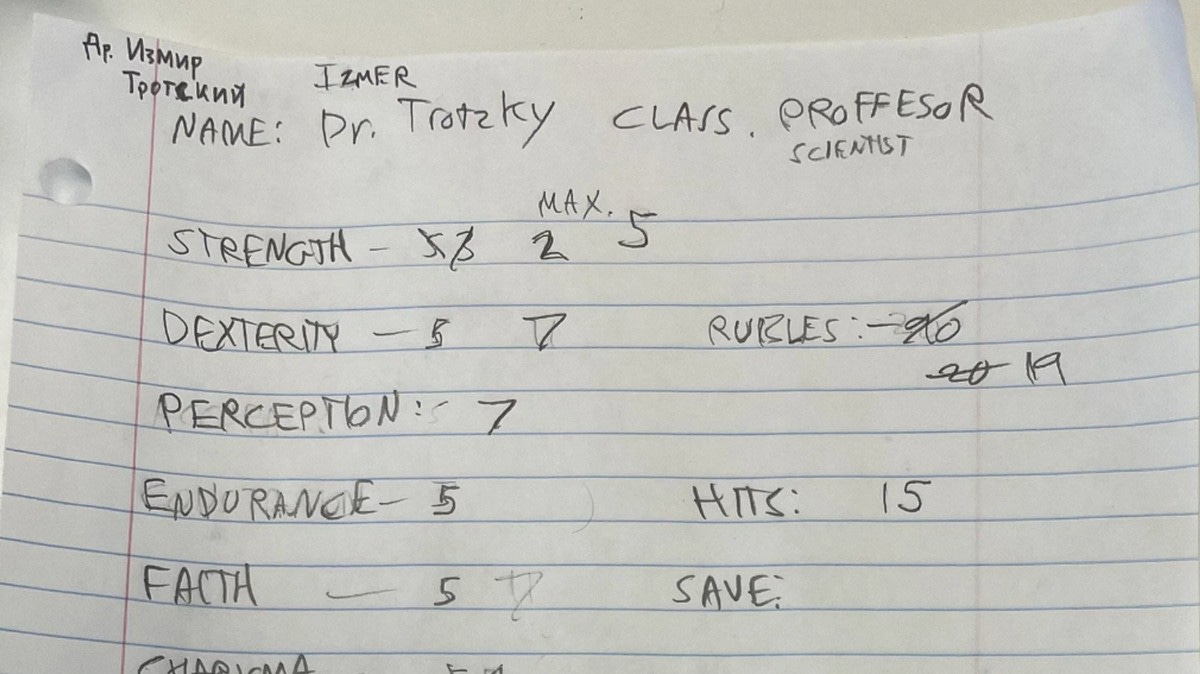 Др. Измир
Тротский
IZMER
NAME: Dr. Trotzky CLASS. PROFFESOR
SCIENTIST
MAX.
STRENGTH - 2 5
DEXTERITY - 5 7 RUBLES: -
20 19
PERCEPTION: - 7
ENDURANCE - 5 HITS: 15
FAITH - 5 7 SAVE:
CHARISMA